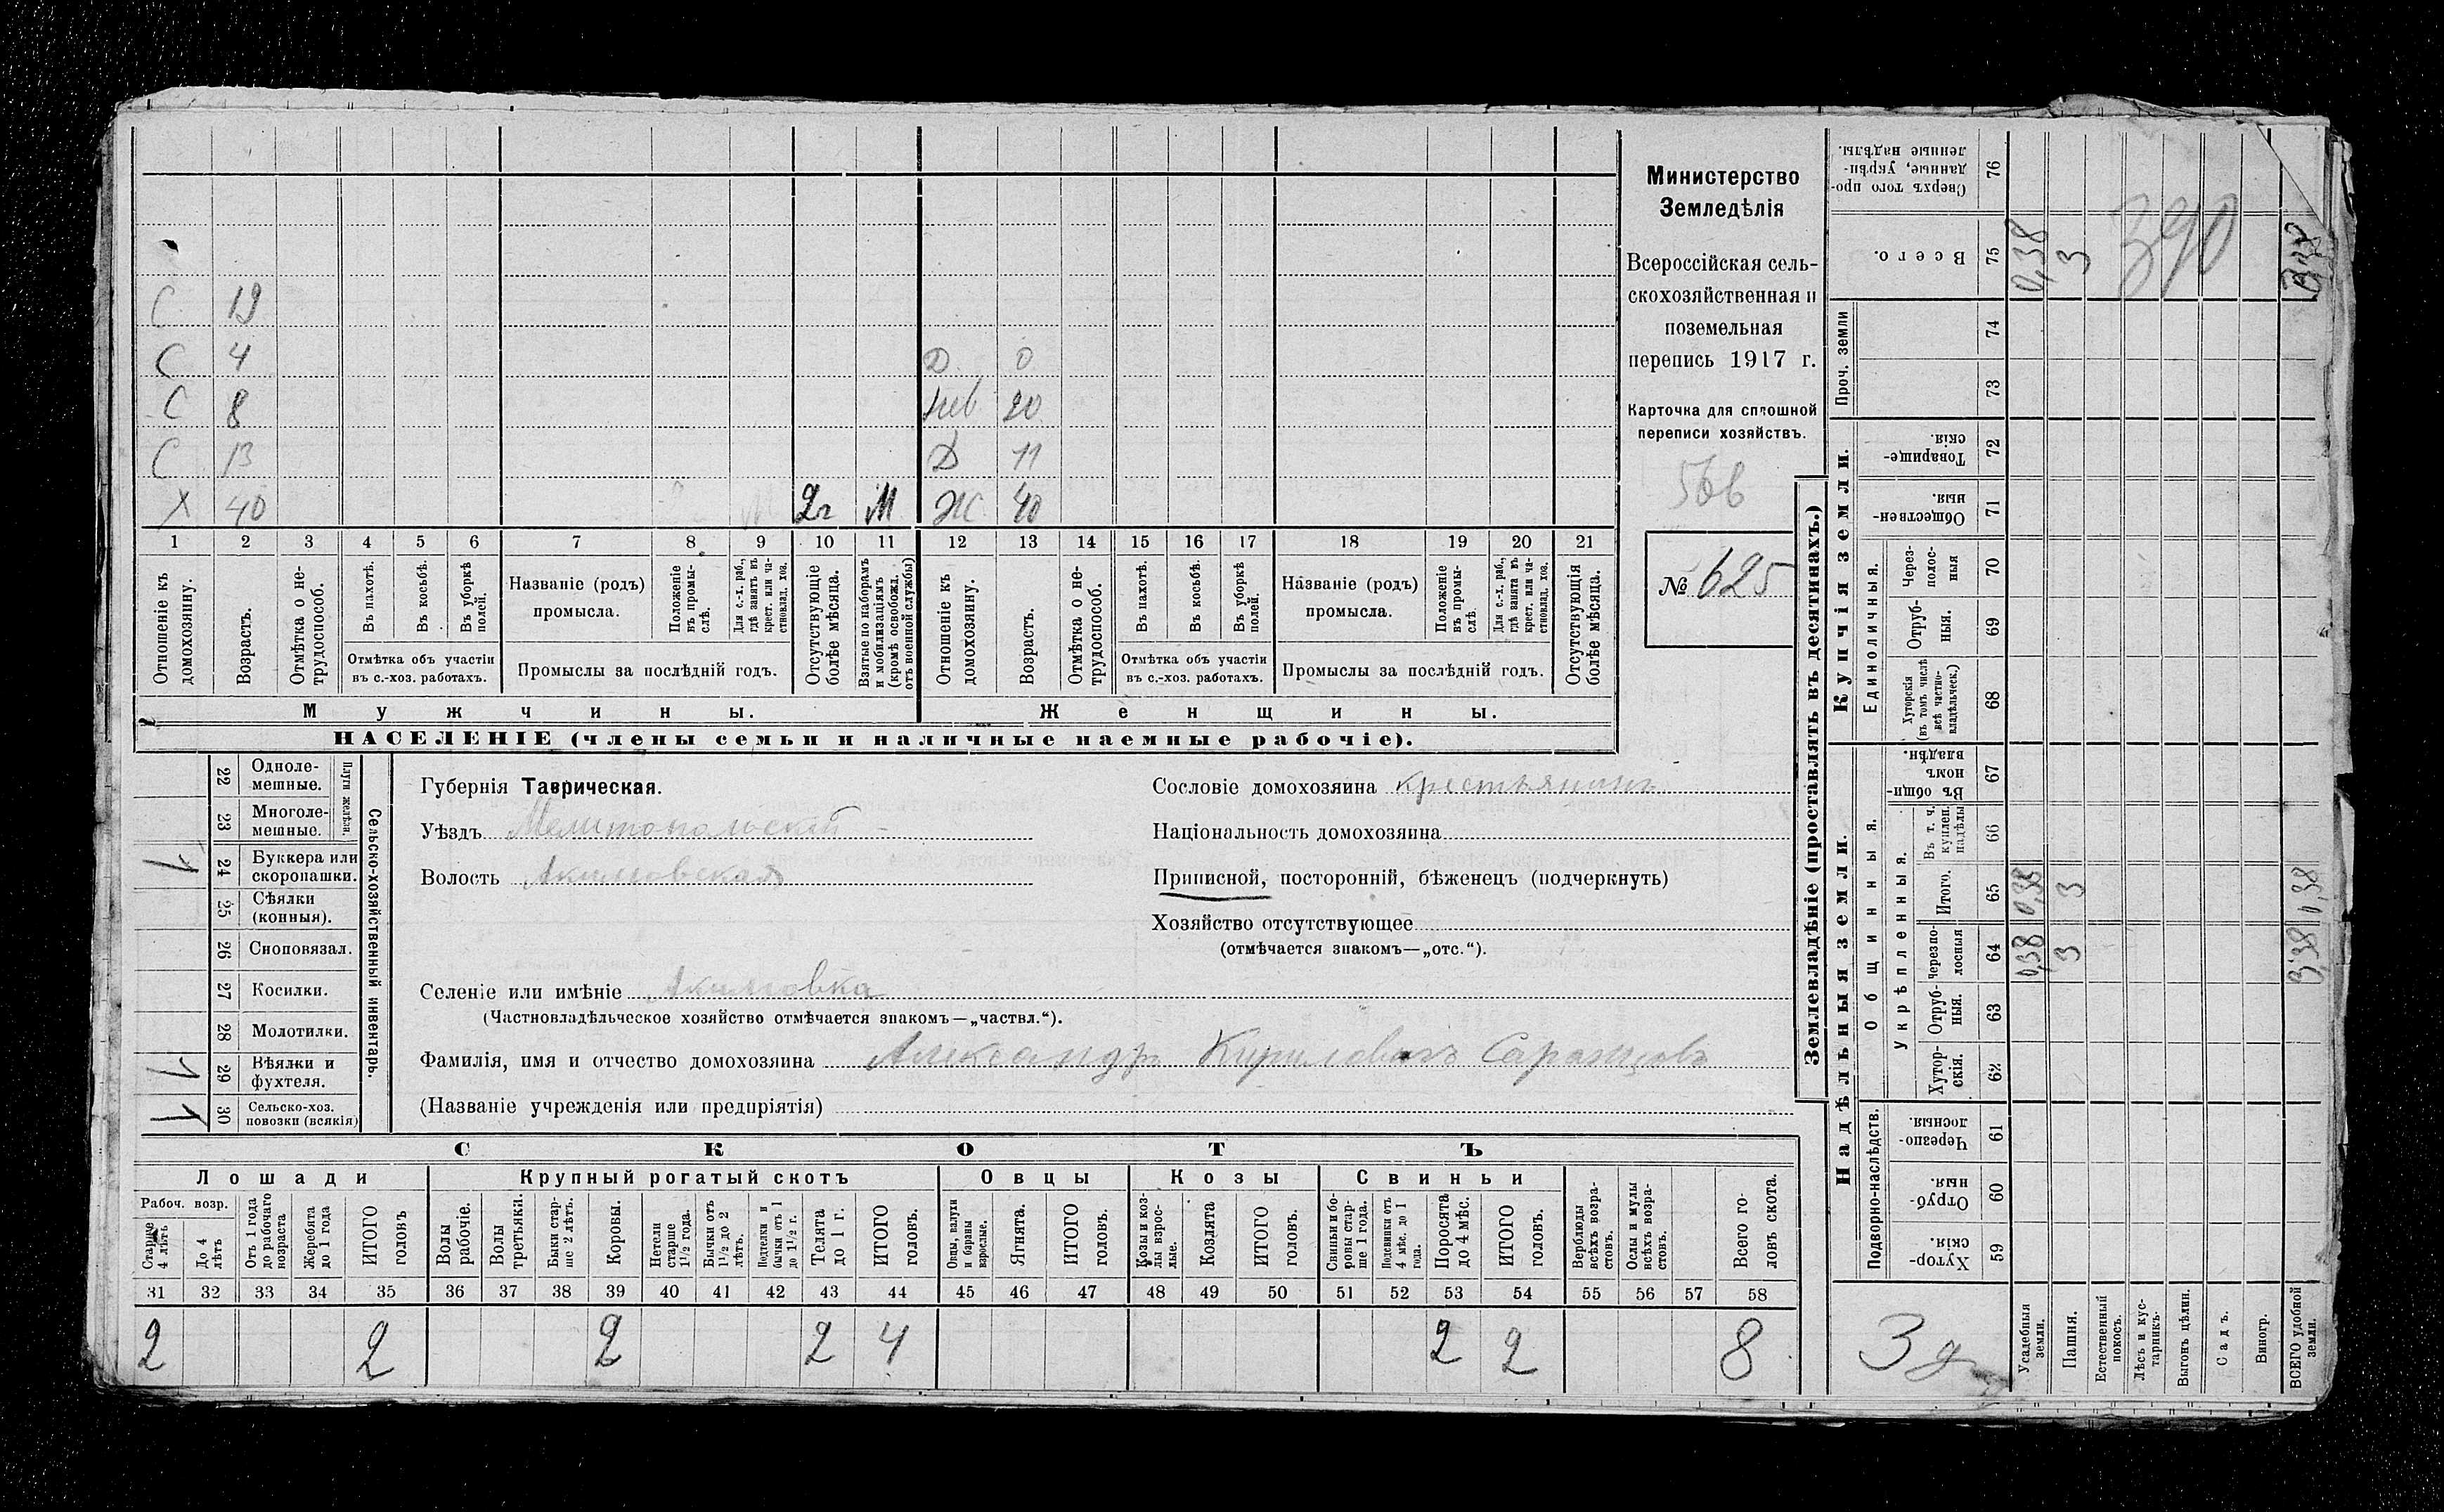 Министерство
Земледѣлія
Всероссійская сель-
скохозяйственная и
поземельная
перепись 1917 г.
Карточка для сплошной
переписи хозяйствъ.
56в
№ 625
С 19
С 4 Д 0
С 8 нев 20
С 13 Д 11
Х 40 2г М Ж 40
1 2 3 4 5 6 7 8 9 10 11 12 13 14 15 16 17 18 19 20 21
Отношеніе къ домохозяину.
Возрастъ.
Отмѣтка о не-трудоспособ.
Въ пахотѣ.
Въ косьбѣ.
Въ уборкѣ полей.
Отмѣтка объ участіи въ с.-хоз. работахъ.
Названіе (родъ) промысла.
Положеніе въ промы-слѣ.
Для с.-х. раб., гдѣ занятъ въ крест. или ча-стновлад. хоз.
Промыслы за послѣдній годъ.
Отсутствующіе болѣе мѣсяца.
Взятые по наборамъ и мобилизаціямъ (кромѣ освобожд. отъ военной службы)
Отношеніе къ домохозяину.
Возрастъ.
Отмѣтка о не-трудоспособ.
Въ пахотѣ.
Въ косьбѣ.
Въ уборкѣ полей.
Отмѣтка объ участіи въ с.-хоз. работахъ.
Названіе (родъ) промысла.
Положеніе въ промы-слѣ.
Для с.-х. раб., гдѣ занята въ крест. или ча-стновлад. хоз.
Промыслы за послѣдній годъ.
Отсутствующія болѣе мѣсяца.
Мужчины. Женщины.
НАСЕЛЕНІЕ (члены семьи и наличные наемные рабочіе).
22 Одноле-мешные.
23 Многоле-мешные.
Плуги желѣзн.
24 Буккера или скоропашки.
25 Сѣялки (конныя).
26 Сноповязал.
27 Косилки.
28 Молотилки.
29 Вѣялки и фухтеля.
30 Сельско-хоз. повозки (всякія)
Сельско-хозяйственный инвентарь.
Губернія Таврическая.
Уѣздъ Мелитопольскій
Волость Акимовская
Селеніе или имѣніе Акимовка
(Частновладѣльческое хозяйство отмѣчается знакомъ—„частвл.“).
Фамилія, имя и отчество домохозяина Александръ Кириловичъ
(Названіе учрежденія или предпріятія)
Сословіе домохозяина крестьянинъ
Національность домохозяина
Приписной, посторонній, бѣженецъ (подчеркнуть)
Хозяйство отсутствующее
(отмѣчается знакомъ—„отс.“).
СКОТЪ
Лошади Крупный рогатый скотъ Овцы Козы Свиньи
Рабоч. возр.
Старше 4 лѣтъ
До 4 лѣтъ
Отъ 1 года до рабочаго возраста
Жеребята до 1 года
ИТОГО головъ
Волы рабочіе.
Волы третьяки.
Быки стар-ше 2 лѣтъ.
Коровы.
Нетели старше 1½ года.
Бычки отъ 1½ до 2 лѣтъ.
Подтелки и бычки отъ 1 до 1½ г.
Телята до 1 г.
ИТОГО головъ.
Овцы, валухи и бараны взрослые.
Ягнята.
ИТОГО головъ.
Козы и коз-лы взрос-лые.
Козлята
ИТОГО головъ.
Свиньи и бо-ровы стар-ше 1 года.
Подсвинки отъ 4 мѣс. до 1 года.
Поросята до 4 мѣс.
ИТОГО головъ.
Верблюды всѣхъ возра-стовъ.
Ослы и мулы всѣхъ возра-стовъ.
Всего го-ловъ скота.
31 32 33 34 35 36 37 38 39 40 41 42 43 44 45 46 47 48 49 50 51 52 53 54 55 56 57 58
2 2 2 2 4 2 2 8
Землевладѣніе (проставлять въ десятинахъ.)
Надѣльныя земли. Купчія земли. Проч. земли
Подворно-наслѣдств.
Общинныя.
Укрѣпленныя.
Единоличныя.
Хутор-скія. 59
Отруб-ныя. 60
Черезпо-лосныя. 61
Хутор-скія. 62
Отруб-ныя. 63
Черезпо-лосныя 64
Итого. 65
Въ т. ч. куплен. надѣлы 66
Въ общин-номъ владѣн. 67
Хуторскія (въ томъ числѣ всѣ частно-владѣльческ.) 68
Отруб-ныя. 69
Через-полос-ныя 70
Обществен-ныя. 71
Товарище-скія. 72
73
74
Всего. 75
Сверхъ того про-данные, укрѣп-ленные надѣлы. 76
3 д
Усадебныя земли. 0,38 0,38 0,38
Пашня. 3 3 3
Естественный покосъ.
Лѣсъ и кус-тарникъ.
Выгонъ цѣлин.
Садъ.
Виногр.
ВСЕГО удобной земли. 3,38
390